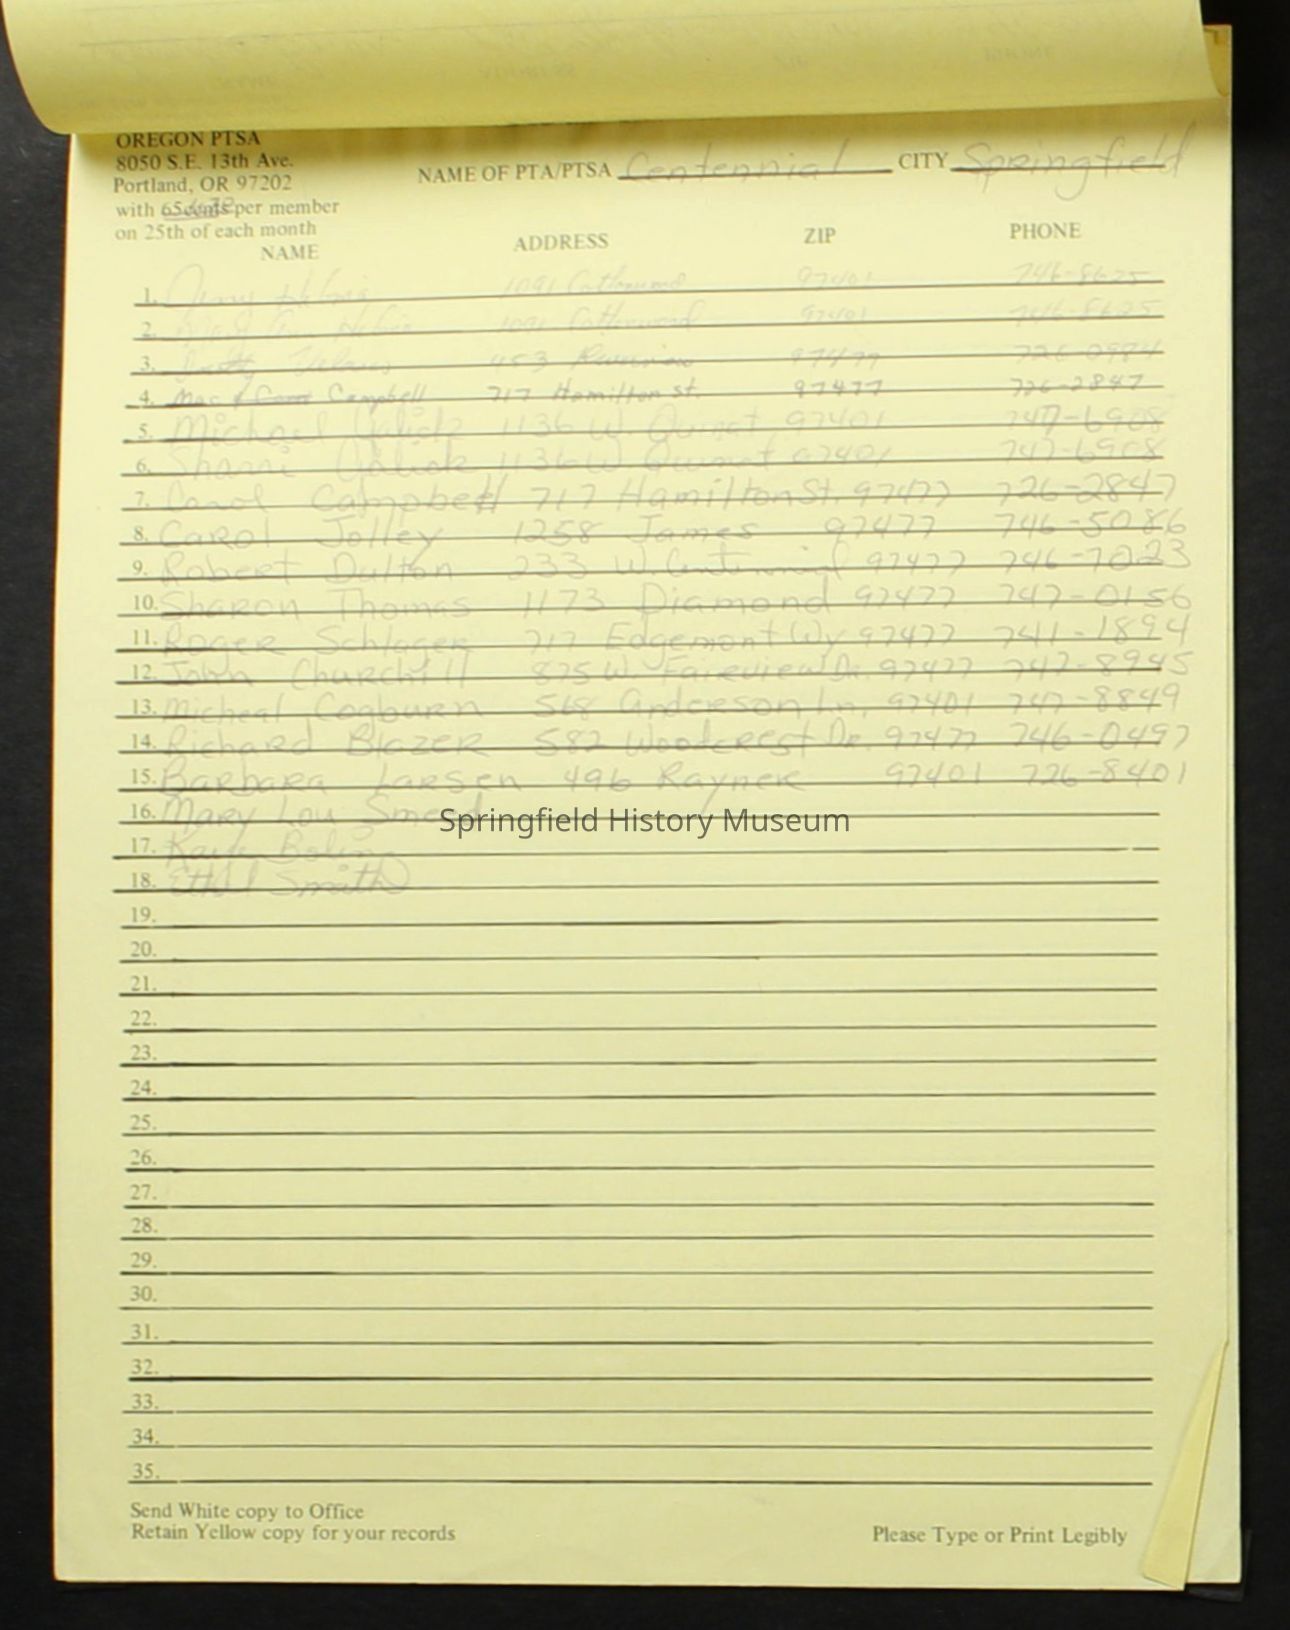 OREGON PTSA
8050 S.E. 13th Ave.
Portland, OR 97202
with 65 cents per member
on 25th of each month
NAME OF PTA/PTSA Centennial CITY Springfield
NAME ADDRESS ZIP PHONE
1. Helms 1091 Cottonwood 97401 746-8625
2. Mary Ann Helms 1091 Cottonwood 97401 746-8625
3. 453 Riverview 97477 726-0984
4. Mac & Carol Campbell 717 Hamilton St. 97477 726-2847
5. Michael 1136 W. Quinalt 97401 747-6908
6. Sharri 1136 W Quinalt 97401 747-6908
7. Carol Campbell 717 Hamilton St. 97477 726-2847
8. Carol Jolley 1258 James 97477 746-5086
9. Robert Dulton 233 W. Centennial 97477 746-7023
10. Sharon Thomas 1173 Diamond 97477 747-0156
11. Roger Schlager 717 Edgemont Wy 97477 741-1894
12. John Churchill 875 W. Faireview Dr. 97477 747-8945
13. Micheal Cogburn 568 Anderson Ln. 97401 747-8849
14. Richard Blazer 582 Woodcrest Dr. 97477 746-0497
15. Barbara Larsen 496 Rayner 97401 726-8401
16. Mary Lou Smeed
Springfield History Museum
17. Kaye Boling
18. Ethel Smith
19.
20.
21.
22.
23.
24.
25.
26.
27.
28.
29.
30.
31.
32.
33.
34.
35.
Send White copy to Office
Retain Yellow copy for your records
Please Type or Print Legibly